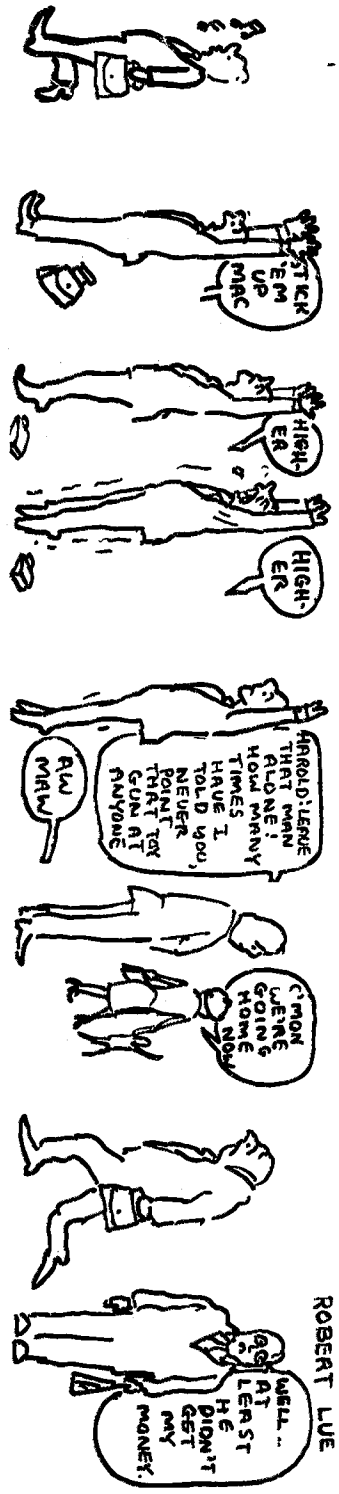 STICK
'EM
UP
MAC
HIGH-
ER
HIGH-
ER
HAROLD! LEAVE
THAT MAN
ALONE!
HOW MANY
TIMES
HAVE I
TOLD YOU,
NEVER
POINT
THAT TOY
GUN AT
ANYONE
AW
MAW
C'MON
WE'RE
GOING
HOME
NOW
ROBERT LUE
WELL..
AT
LEAST
HE
DIDN'T
GET
MY
MONEY.